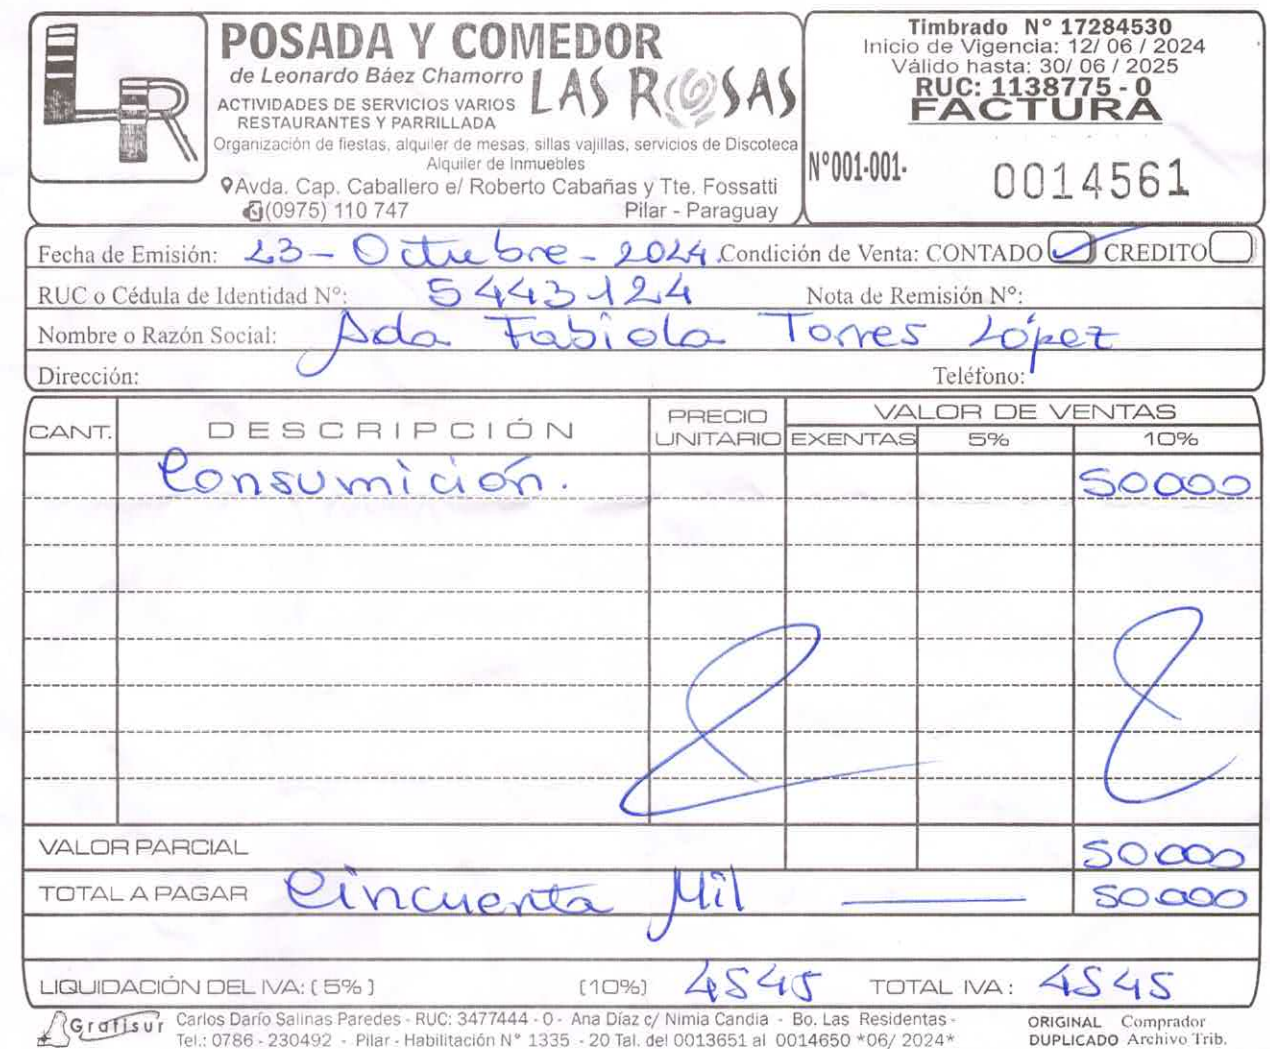 POSADA Y COMEDOR
de Leonardo Báez Chamorro LAS ROSAS
ACTIVIDADES DE SERVICIOS VARIOS
RESTAURANTES Y PARRILLADA
Organización de fiestas, alquiler de mesas, sillas vajillas, servicios de Discoteca
Alquiler de Inmuebles
Avda. Cap. Caballero e/ Roberto Cabañas y Tte. Fossatti
(0975) 110 747 Pilar - Paraguay
Timbrado N° 17284530
Inicio de Vigencia: 12/ 06 / 2024
Válido hasta: 30/ 06 / 2025
RUC: 1138775 - 0
FACTURA
N°001-001- 0014561
Fecha de Emisión: 23 - Octubre - 2024. Condición de Venta: CONTADO CREDITO
RUC o Cédula de Identidad N°: 5443124 Nota de Remisión N°:
Nombre o Razón Social: Ada Fabiola Torres López
Dirección: Teléfono:
CANT. DESCRIPCIÓN PRECIO UNITARIO VALOR DE VENTAS
EXENTAS 5% 10%
Consumición. 50000
VALOR PARCIAL 50000
TOTAL A PAGAR Cincuenta Mil 50.000
LIQUIDACIÓN DEL IVA: (5%) (10%) 4545 TOTAL IVA: 4545
Grafisur Carlos Darío Salinas Paredes - RUC: 3477444 - 0 - Ana Díaz c/ Nimia Candia - Bo. Las Residentas -
Tel.: 0786 - 230492 - Pilar - Habilitación N° 1335 - 20 Tal. del 0013651 al 0014650 *06/ 2024*
ORIGINAL Comprador
DUPLICADO Archivo Trib.